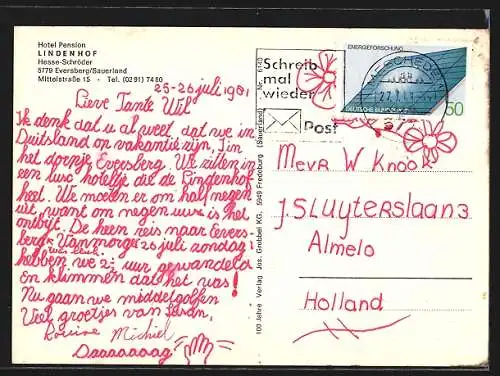 Hotel Pension
LINDENHOF
Hesse-Schröder
5779 Eversberg/Sauerland
Mittelstraße 15 - Tel. (0291) 7480
25-26 juli 1981
Lieve Tante Wil
Ik denk dat u al weet dat we in
Duitsland op vakantie zijn, in
het dorpje Eversberg. We zitten in
een luxe hoteltje die de Lindenhof
heet. We moeten er om half negen
uit, want om negen uur is het
ontbijt. De heen reis naar Evers-
berg was leuk. Vanmorgen 25 juli zondag
hebben we 2½ uur gewandeld
en klimmen dat het was!
Nu gaan we midgetgolfen
Veel groetjes van Susan,
Louise Michiel
Daaaaaaag
100 Jahre Verlag Jos. Grobbel KG, 5949 Fredeburg (Sauerland) Nr. 6140
Schreib
mal
wieder
Post
ENERGIEFORSCHUNG
DEUTSCHE BUNDESPOST
50
MESCHEDE
27.7.81
Mevr W Knook
J. SLUYTERSLAAN 3
Almelo
Holland